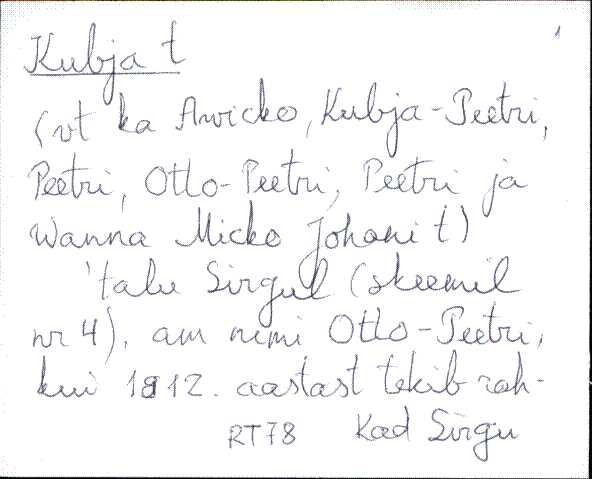 1
Kubja t
(vt ka Awicko, Kubja-Peetri,
Peetri, Otto-Peetri, Peetri ja
Wanna Micko Johani t)
'talu Sirgul (skeemil
nr 4), am nimi Otto-Peetri,
kui 1812. aastast tekib rah-
RT78 Kad Sirgu